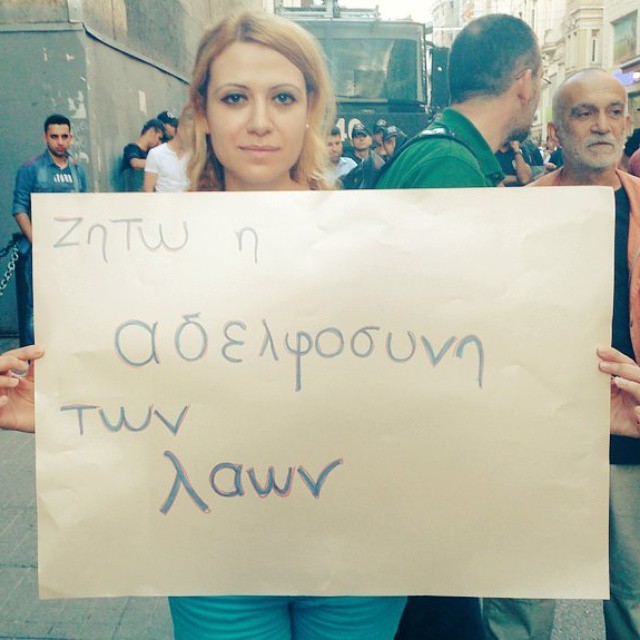 ζητω η
αδελφοσυνη
των
λαων